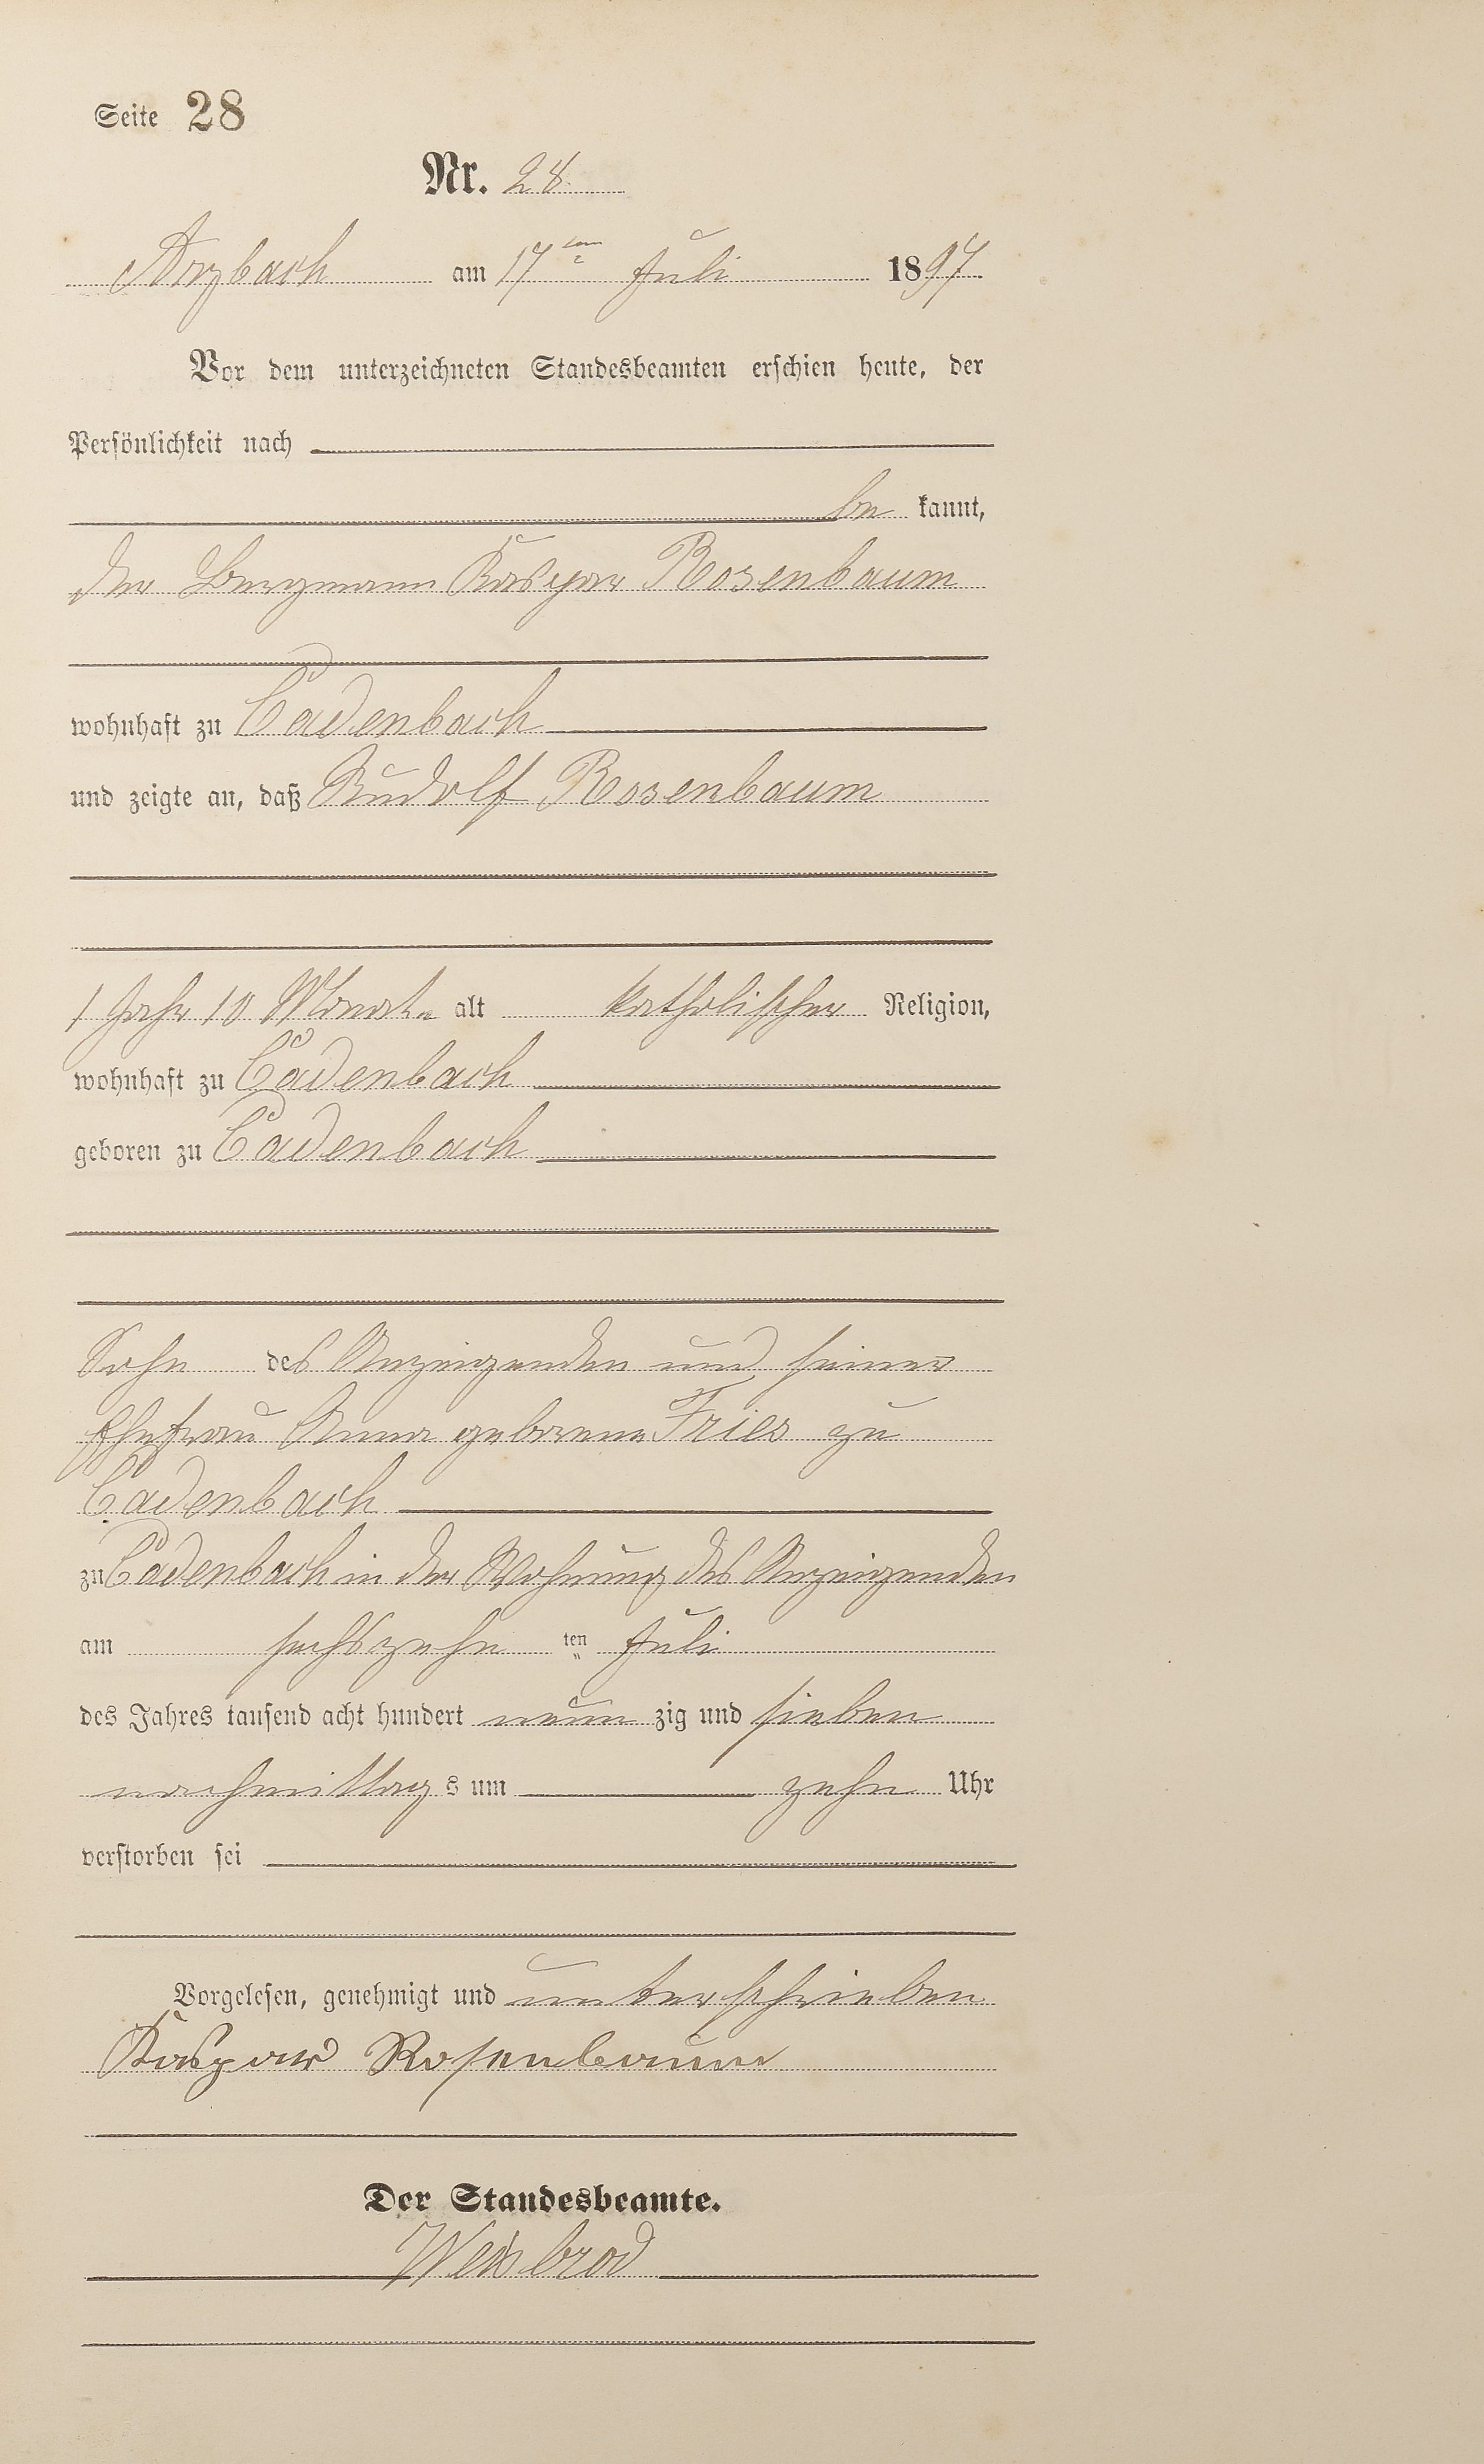 Seite 28
Nr. 28
Arzbach am 17ten Juli 1897
Vor dem unterzeichneten Standesbeamten erschien heute, der
Persönlichkeit nach
be kannt,
der Bergmann Kaspar Rosenbaum
wohnhaft zu Cadenbach
und zeigte an, daß Rudolf Rosenbaum
1 Jahr 10 Monate alt katholischer Religion,
wohnhaft zu Cadenbach
geboren zu Cadenbach
Sohn des Anzeigenden und seiner
Ehefrau Anna geborene Fries zu
Cadenbach
zu Cadenbach in der Wohnung des Anzeigenden
am sechszehn ten Juli
des Jahres tausend acht hundert neun zig und sieben
nachmittag s um zehn Uhr
verstorben sei
Vorgelesen, genehmigt und unterschrieben
Kaspar Rosenbaum
Der Standesbeamte.
Weisbrod